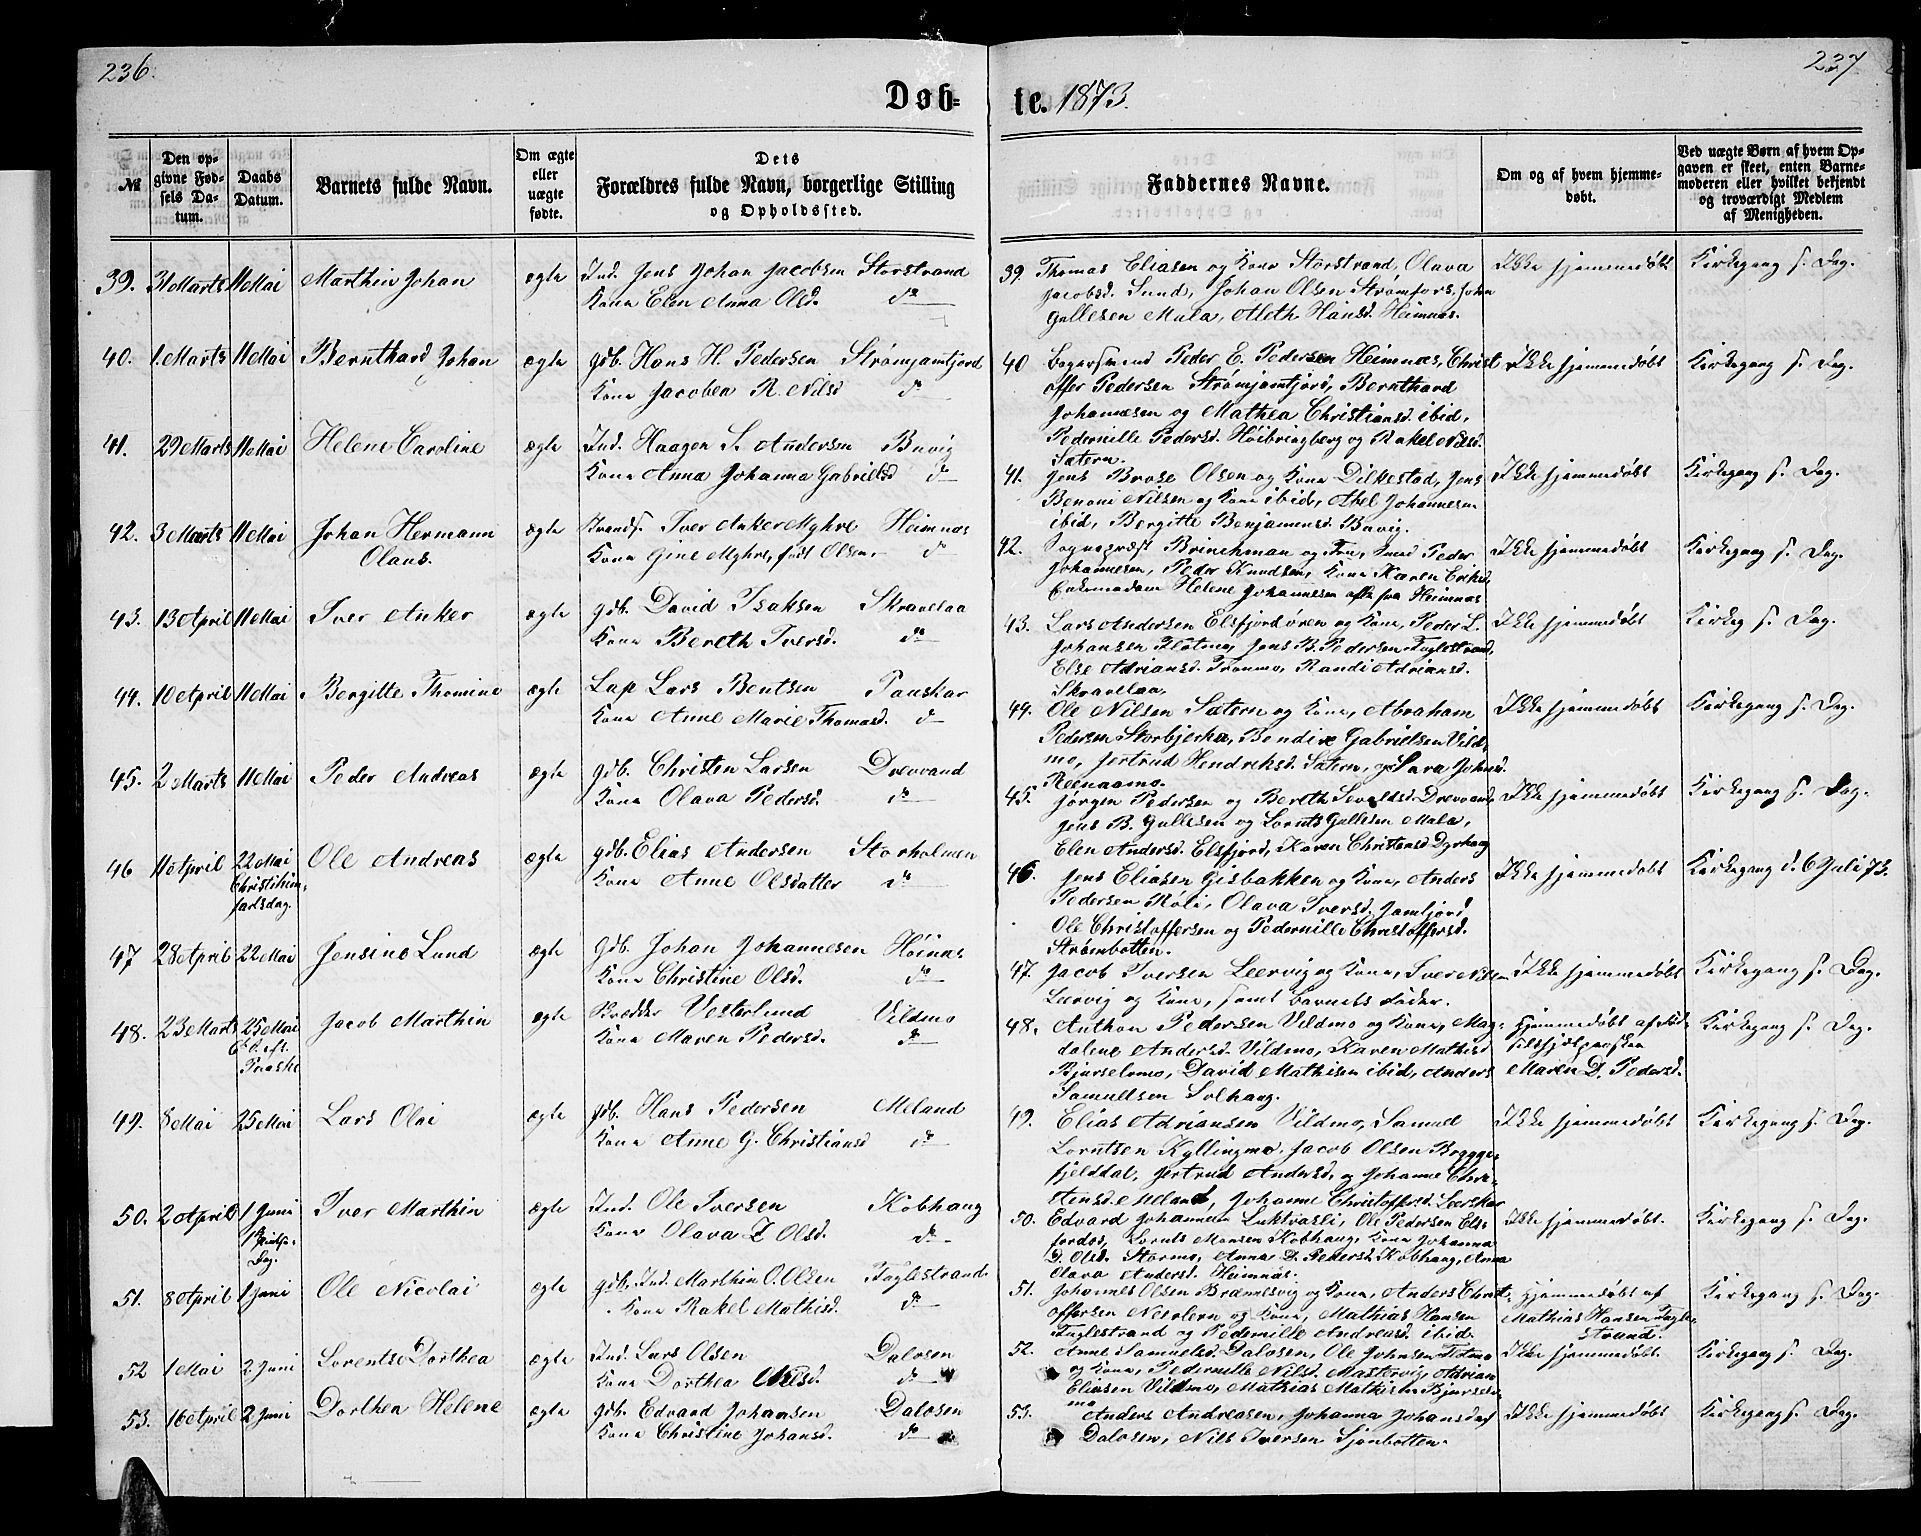 236.
237
Døb-
te. 1873.
№
Den op-
givne Fød-
sels Da-
tum.
Daabs
Datum.
Barnets fulde Navn.
Om ægte
eller
uægte
fødte.
Dets
Forældres fulde Navn, borgerlige Stilling
og Opholdssted.
Faddernes Navne.
Om og af hvem hjemme-
døbt.
Ved uægte Børn af hvem Op-
gaven er skeet, enten Barne-
moderen eller hvilket bekjendt
og troværdigt Medlem
af Menigheden.
39. 31 Marts 11 Mai Marthin Johan ægte Ind. Jens Johan Jacobsen Storstrand
Kone Elen Anna Olsd. do
39 Thomas Eliasen og Kone Storstrand, Olava
Jacobsd. Sund, Johan Olsen Strømfors, John
Gullesen Mula, Aleth Hansd. Heimnæs.
Ikke hjemmedøbt Kirkegang s. Dag.
40. 1 Marts 11 Mai Bernthard Johan ægte gdb. Hans H. Pedersen Strømjamtjord
Kone Jacobea R. Nilsd do
40 Peder E. Pedersen Heimnæs, Christ
offer Pedersen Strømjamtjord, Bernthard
Johannesen og Mathea Christiansd. ibid,
Pedernille Pedersd. Høibringberg og Rakel Nilsd.
Sætern.
Ikke hjemmedøbt Kirkegang s. Dag.
41. 29 Marts 11 Mai Helene Caroline ægte Ind. Haagen S. Andersen Buvig
Kone Anna Johanna Gabrielsd do
41. Jens Brose Olsen og Kone Dilkestad, Jens
Benoni Nilsen og Kone ibid, Abel Johannesen
ibid, Bergitte Benjaminsd. Buvig.
Ikke hjemmedøbt Kirkegang s. Dag.
42. 3 Marts 11 Mai Johan Hermann
Olaus. ægte Strands. Iver Anker Myhre Heimnæs
Kone Gine Myhre, født Olsen. do
42. Sognepræst Brinchman og Frue, Smed Peder
Johannesen, Peder Knudsen, Kone Karen Eriksd,
Enkemadam Helene Johannesen alle fra Heimnæs
Ikke hjemmedøbt Kirkegang s. Dag.
43. 13 April 11 Mai Iver Anker ægte gdb. David Isaksen Skravelaa
Kone Bereth Iversd. do
43. Lars Andersen Elsfjordøren og Kone, Peder L.
Johansen Flotmo, Jens B. Pedersen Fuglestrand,
Else Adriansd. Tronmo, Randi Adriansd.
Skravelaa.
Ikke hjemmedøbt Kirkeg s. Dag.
44. 10 April 11 Mai Bergitte Thomine ægte Lap Lars Bentsen Pauskar
Kone Anne Marie Thomasd. do
44. Ole Nilsen Sætern og Kone, Abraham
Pedersen Storbjerka, Bendix Gabrielsen Vild-
mo, Jertrud Hendriksd. Sætern, og Sara Johnsd.
Reenaamo.
Ikke hjemmedøbt Kirkegang s. Dag.
45. 2 Marts 11 Mai Peder Andreas ægte gdb. Christen Larsen Drevvand
Kone Olava Pedersd. do
45. Jørgen Pedersen og Bereth Sevaldsd. Drevvand,
Jens B. Gullesen og Lornts Gullesen Mula,
Elen Andersd. Elsfjord, Karen Christensd Dyrhaug
Ikke hjemmedøbt Kirkegang s. Dag.
46 11 April 22 Mai
Christihim-
farlsdag. Ole Andreas ægte gdb. Elias Andersen Storholmen
Kone Anne Olsdatter do
46. Jens Eliasen Gisbakken og Kone, Anders
Pedersen Røli, Olava Iversd. Jamtjord
Ole Christoffersen og Pedernille Christoffersd.
Strømbotten.
Ikke hjemmedøbt Kirkegang d. 6 Juli 73.
47 28 April 22 Mai Jensine Lund ægte gdb. Johan Johannesen Høinæs
Kone Christine Olsd. do
47. Jacob Iversen Leervig og Kone, Iver Nilsen
Leervig og Kone, samt Barnets Fader.
Ikke hjemmedøbt Kirkegang s. Dag.
48. 23 Marts 25 Mai
6 S. eft.
Paaske Jacob Marthin ægte Brædder Vesterlund Vildmo
Kone Maren Pedersd. do
48. Anthon Pedersen Vildmo og Kone, Mag-
dalene Andersd. Vildmo, Karen Mathisd
Bjurselvmo, David Mathisen ibid, Anders
Samuelsen Solhaug.
Hjemmedøbt af
Maren D. Pedersd.
Kirkegang s. Dag.
49. 8 Mai 25 Mai Lars Olai ægte gdb. Hans Pedersen Meland
Kone Anne G. Christiansd do
49. Elias Adriansen Vildmo, Samuel
Lorntsen Kyllingmo, Jacob Olsen Bryggg-
fjelddal, Jertrud Andersd. og Johanne Chri-
stensd. Meland, Johanne Christoffersd. Leerskar
Ikke hjemmedøbt Kirkegang s. Dag.
50. 2 April 1 Juni
1 Pintse-
Dag. Iver Marthin ægte Ind. Ole Iversen Kobhaug
Kone Olava Z Olsd. do
50. Edvard Johannesen Luktvasli, Ole Pedersen Els-
fordos, Lornts Monsen Kobhaug, Kone Johanna
D. Olsd. Stormo, Anna D. Pedersd. Kobhaug, Anna
Olava Andersd. Heimnæs.
Ikke hjemmedøbt. Kirkegang s. Dag.
51. 8 April 1 Juni Ole Nicolai ægte gdb. Ind. Marthin O. Olsen Fuglestrand
Kone Rakel Mathisd. do
51. Johannes Olsen Bræmesvig og Kone, Anders Christ-
offersen Nesolern og Kone, Mathias Hansen
Fuglestrand og Pedernille Andreasd. ibid.
Hjemmedøbt af
Mathias Hansen Fugle-
strand.
Kirkegang s. Dag.
52 1 Mai 2 Juni Lorentse Dorthea ægte Ind. Lars Olsen Dalosen
Kone Dorthea Nilsd. do
52. Anne Samuelsd. Dalosen, Ole Johnsen Flotmo
og Kone, Pedernille Nilsd. Mastervig, Adrian
Eliasen Vildmo, Mathias Mathisen Bjurselv-
mo
Ikke hjemmedøbt Kirkegang s. Dag.
53. 16 April 2 Juni Dorthea Helene ægte gdb. Edvard Johansen Dalosen
Kone Christine Johansd. do
53. Anders Andreasen, Johanna Johansd af
Dalosen, Nils Iversen Sjonbotten.
Ikke hjemmedøbt Kirkegang s. Dag.